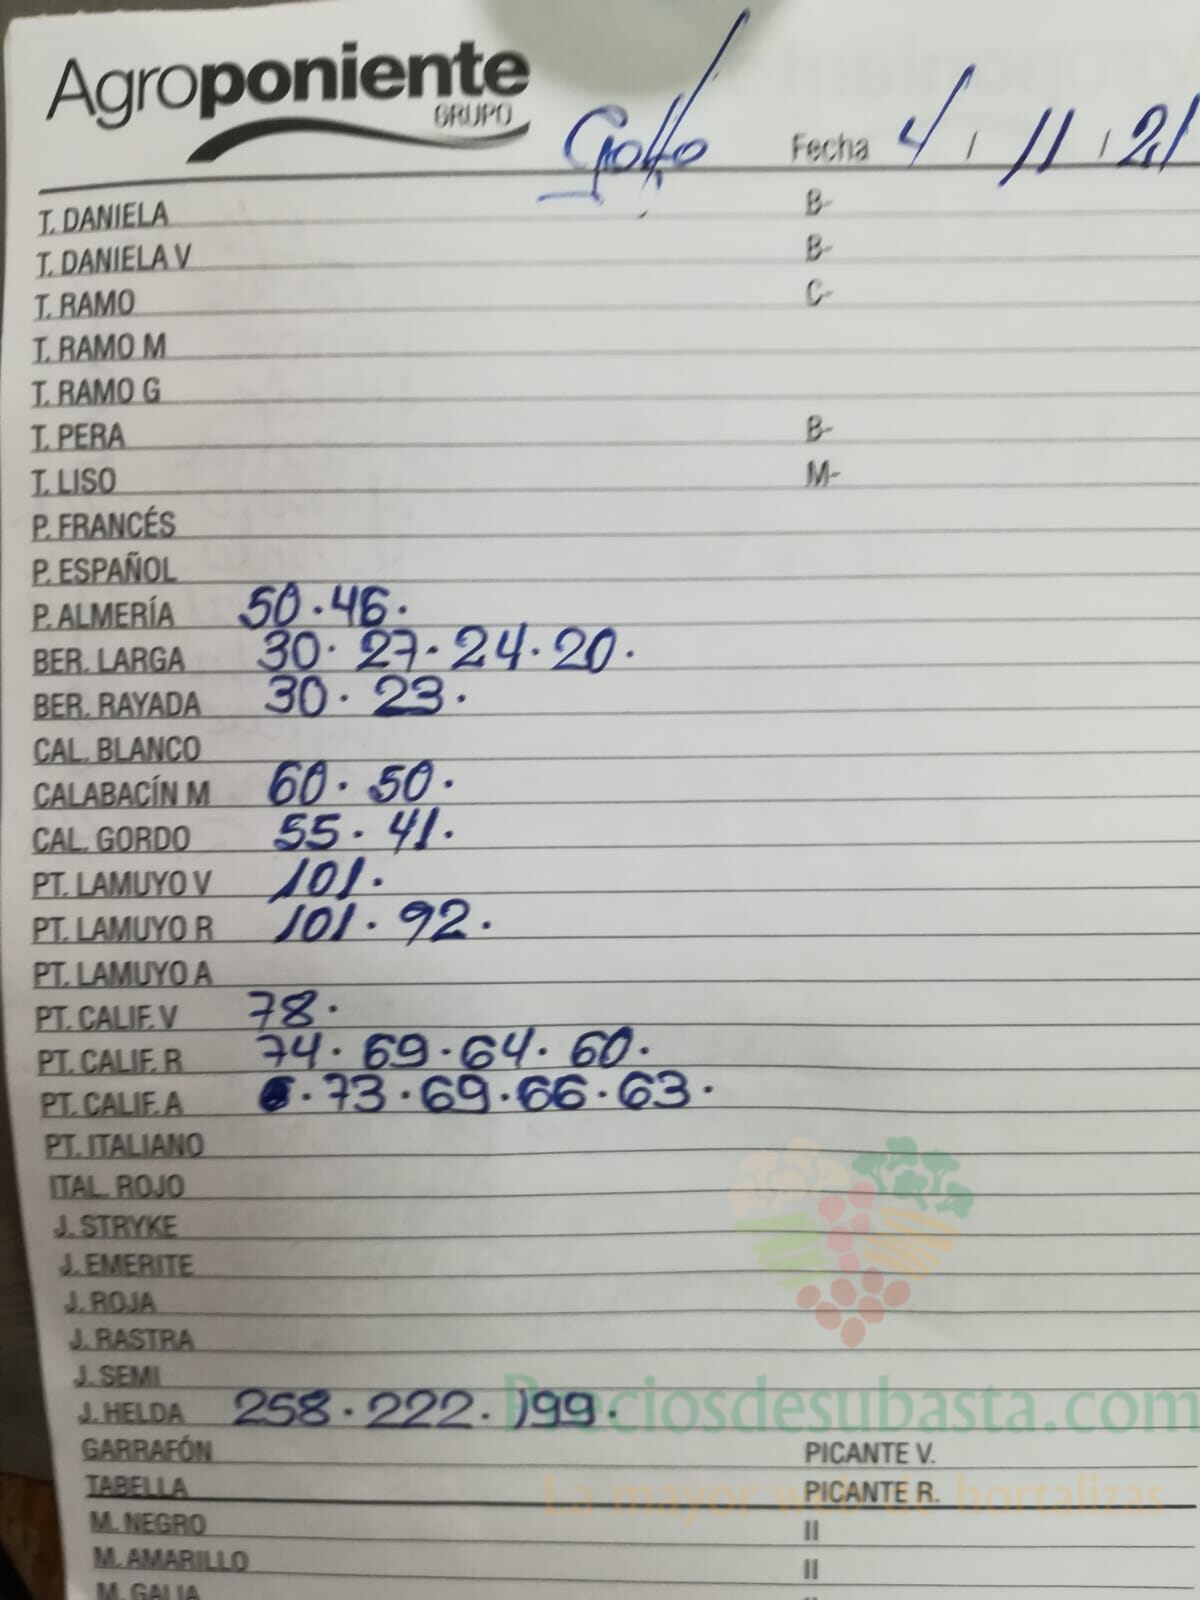 Agroponiente
GRUPO
Golfo Fecha 4 / 11 / 21
T. DANIELA B-
T. DANIELA V B-
T. RAMO C-
T. RAMO M
T. RAMO G
T. PERA B-
T. LISO M-
P. FRANCÉS
P. ESPAÑOL
P. ALMERÍA 50 · 46 ·
BER. LARGA 30 · 27 · 24 · 20 ·
BER. RAYADA 30 · 23 ·
CAL. BLANCO
CALABACÍN M 60 · 50 ·
CAL. GORDO 55 · 41 ·
PT. LAMUYO V 101 ·
PT. LAMUYO R 101 · 92 ·
PT. LAMUYO A
PT. CALIF. V 78 ·
PT. CALIF. R 74 · 69 · 64 · 60 ·
PT. CALIF. A · 73 · 69 · 66 · 63 ·
PT. ITALIANO
ITAL. ROJO
J. STRYKE
J. EMERITE
J. ROJA
J. RASTRA
J. SEMI
J. HELDA 258 · 222 · 199 ·
Preciosdesubasta.com
GARRAFÓN PICANTE V.
TABELLA PICANTE R.
La mayor web de hortalizas
M. NEGRO II
M. AMARILLO II
M. GALIA